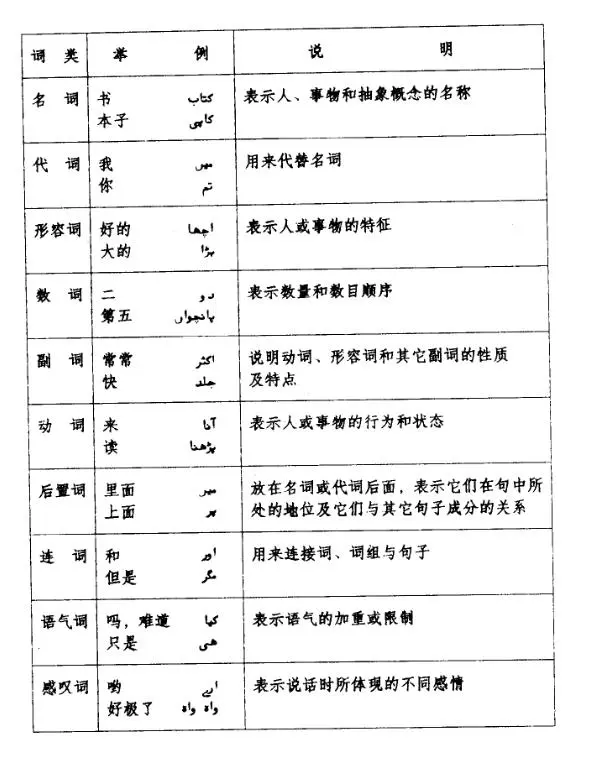 词类 举例 说明
名词 书 کتاب 表示人、事物和抽象概念的名称
本子 کاپی
代词 我 میں 用来代替名词
你 تم
形容词 好的 اچھا 表示人或事物的特征
大的 بڑا
数词 二 دو 表示数量和数目顺序
第五 پانچواں
副词 常常 اکثر 说明动词、形容词和其它副词的性质
快 جلد 及特点
动词 来 آنا 表示人或事物的行为和状态
读 پڑھنا
后置词 里面 میں 放在名词或代词后面，表示它们在句中所
上面 پر 处的地位及它们与其它句子成分的关系
连词 和 اور 用来连接词、词组与句子
但是 مگر
语气词 吗，难道 کیا 表示语气的加重或限制
只是 ھی
感叹词 哟 ارے 表示说话时所体现的不同感情
好极了 واہ واہ